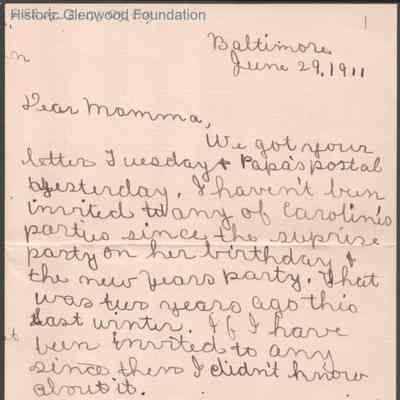 Historic Glenwood Foundation
Baltimore
June 29, 1911
Dear Mamma,
We got your
letter Tuesday & Papa's postal
yesterday. I haven't been
invited to any of Caroline's
parties since the suprise
party on her birthday &
the new years party. That
was two years ago this
last winter. If I have
been invited to any
since then I didn't know
about it.